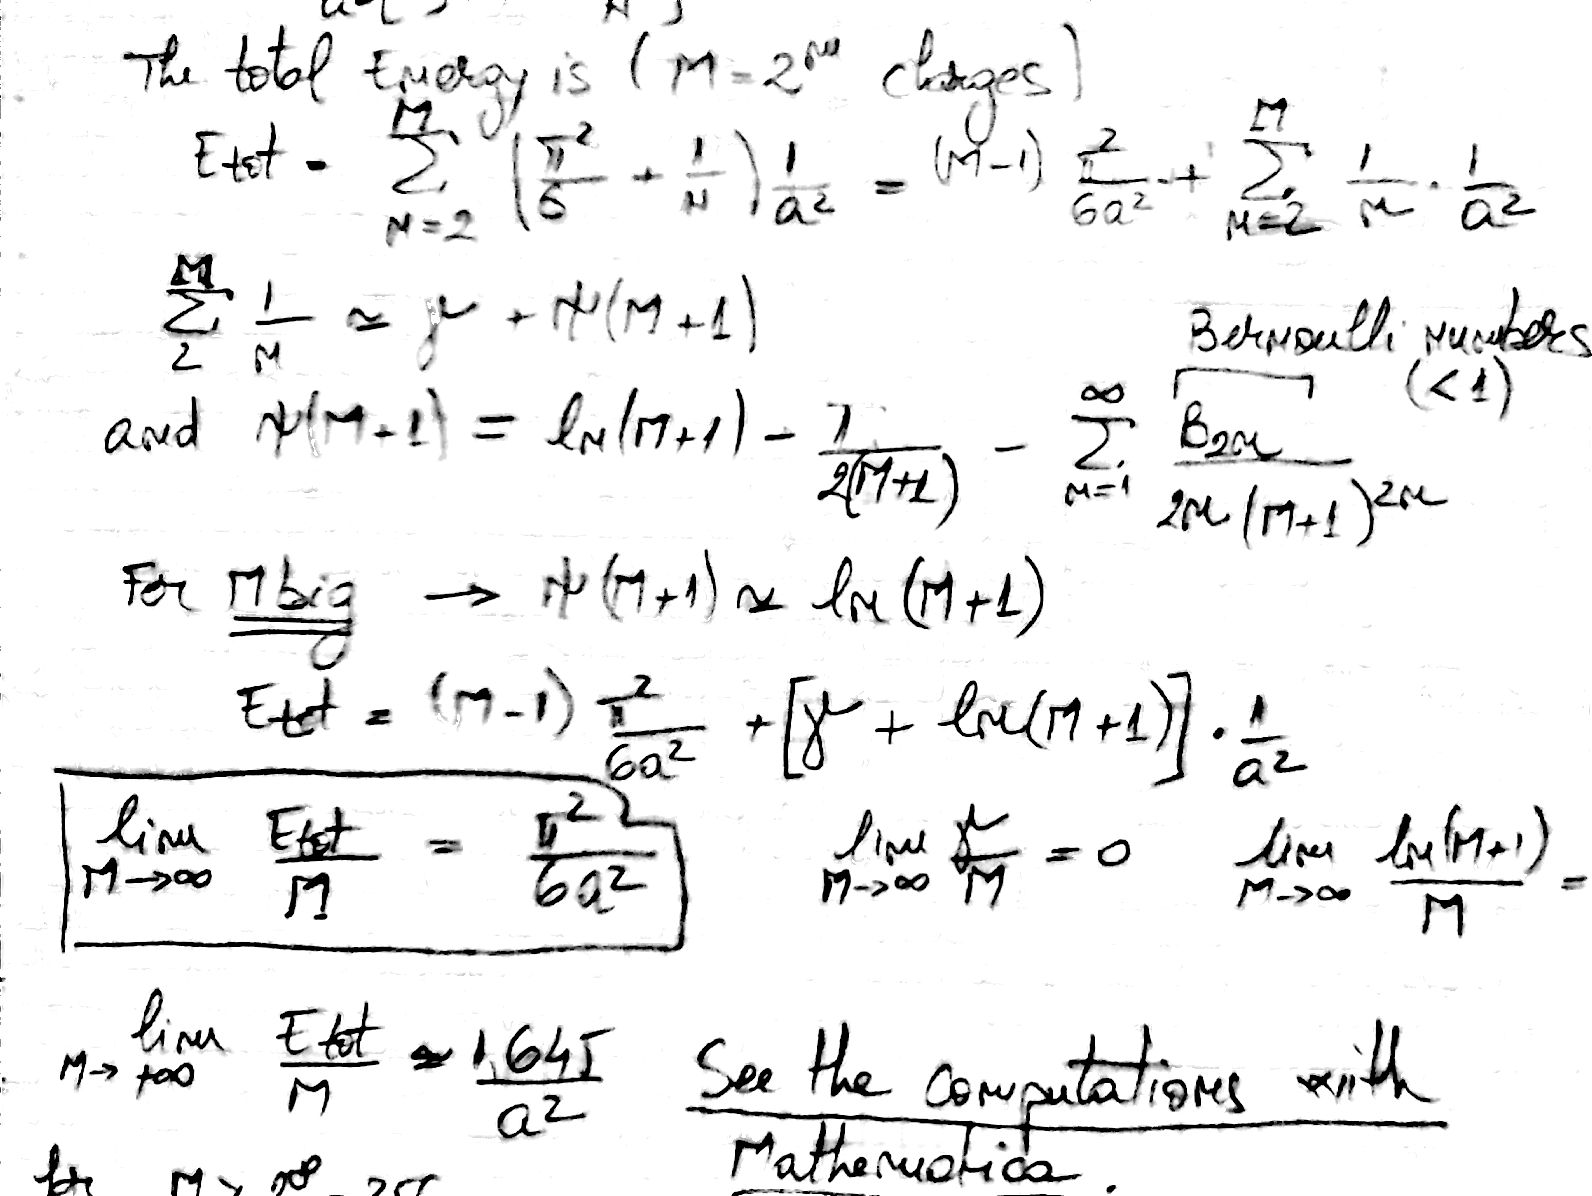 The total Energy is (M = 2^m charges)
Etot = \sum_{n=2}^{M} (π²/6 + 1/n) 1/a² = (M-1) π²/6a² + \sum_{n=2}^{M} 1/n · 1/a²
\sum_{2}^{M} 1/n ≃ γ + ψ(M+1)
Bernoulli numbers
(<1)
and ψ(M+1) = ln(M+1) - 1/2(M+1) - \sum_{n=1}^{∞} B_{2n}/2n(M+1)^{2n}
For M big → ψ(M+1) ≃ ln(M+1)
Etot = (M-1) π²/6a² + [γ + ln(M+1)] · 1/a²
lim_{M→∞} Etot/M = π²/6a² lim_{M→∞} γ/M = 0 lim_{M→∞} ln(M+1)/M =
lim_{M→+∞} Etot/M ≃ 1,645/a² See the computations with
Mathematica.